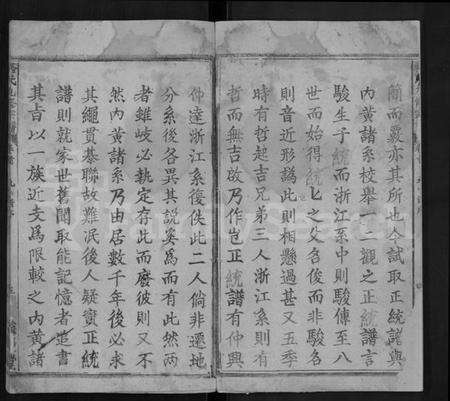 簡而嚴亦其所也今試取正統譜與
內黃諸系校舉一二觀之正統譜言
駿生子統而浙江系中則駿傳至八
世而始得統七之父名俊而非駿名
則音近形譌此則相懸過甚又五季
時有哲起吉兄弟三人浙江系則有
哲而無吉啟乃作豈正統譜有仲興
仲達浙江系復佚此二人倘非遷地
分系後各異其說奚爲而有此然兩
者雖岐必執定存此而廢彼則又不
然內黃諸系乃由居數千年後必求
其繩貫綦聯故難泯後人疑竇正統
譜則就家世舊聞取能記憶者造書
其旨以一族近支爲限較之內黃諸